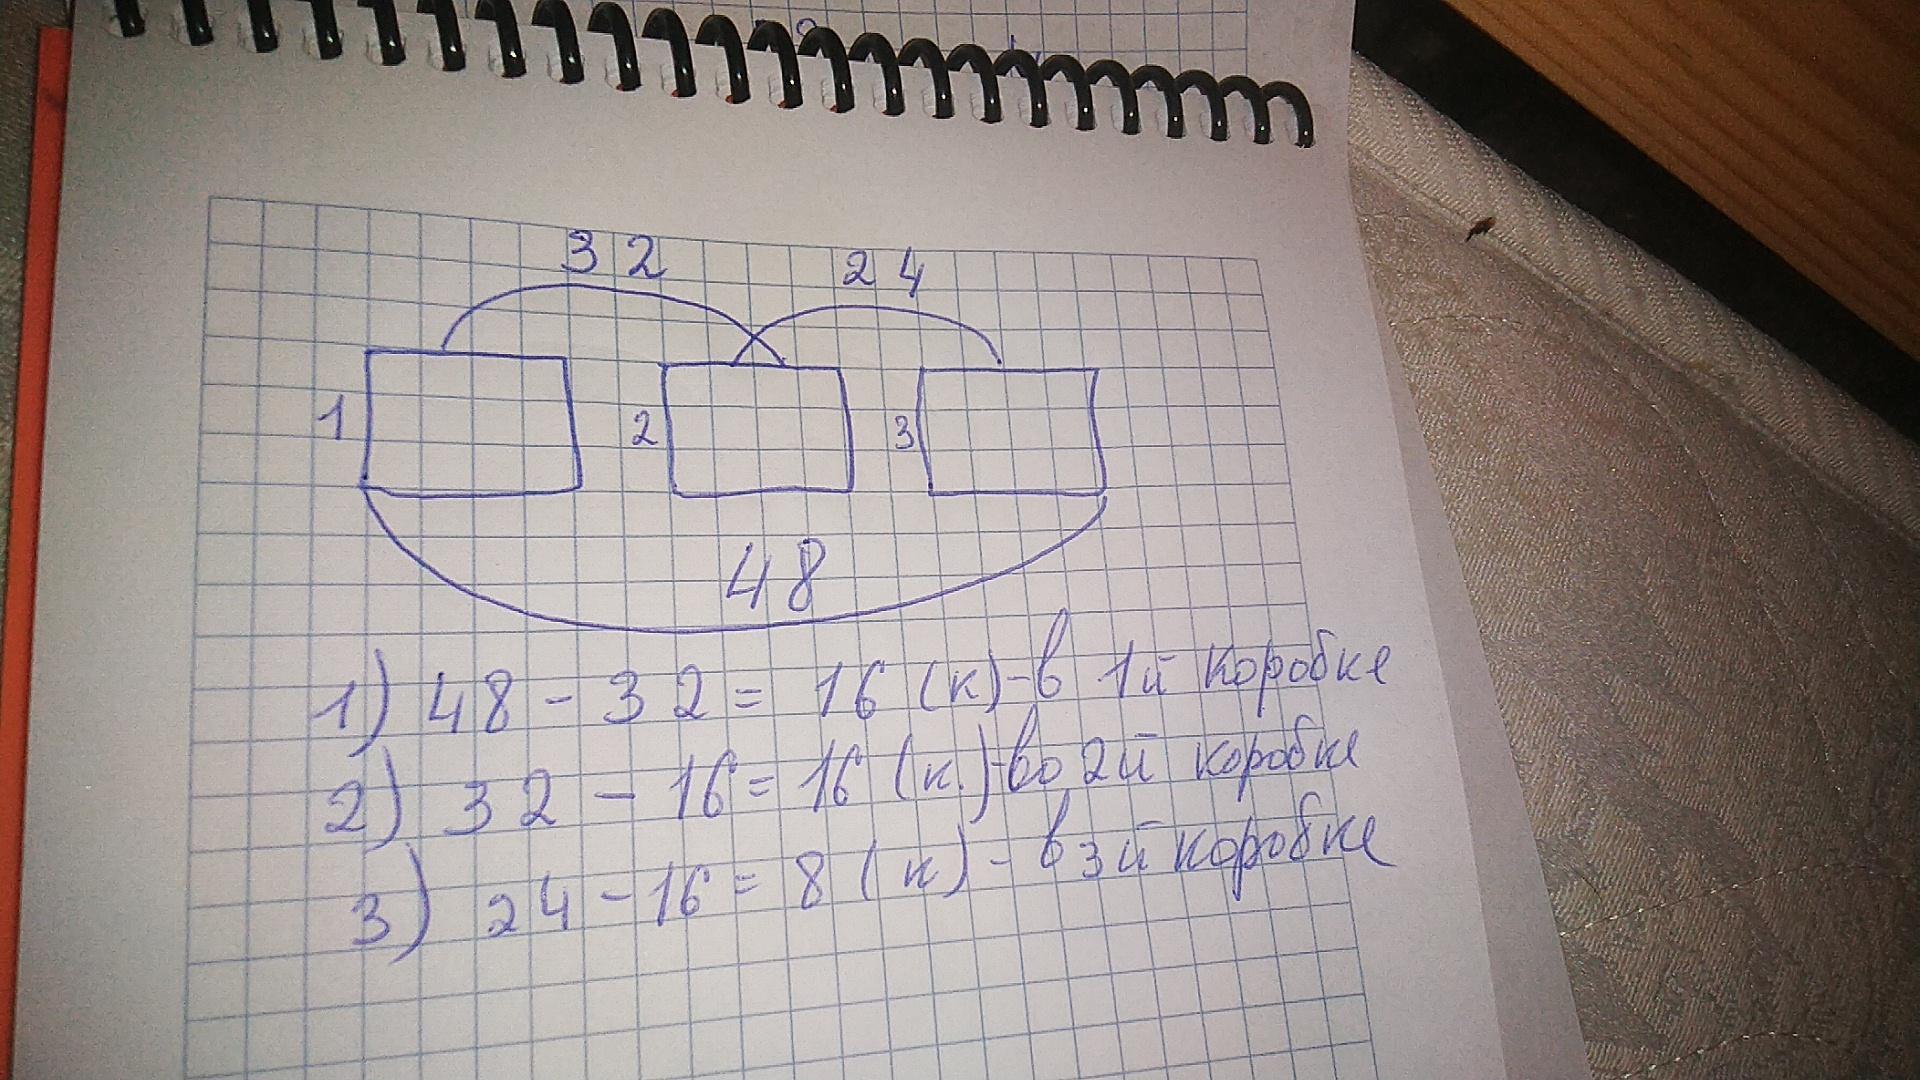 32 24
1 2 3
48
1) 48 - 32 = 16 (к) - в 1й коробке
2) 32 - 16 = 16 (к.) - во 2й коробке
3) 24 - 16 = 8 (к) - в 3й коробке